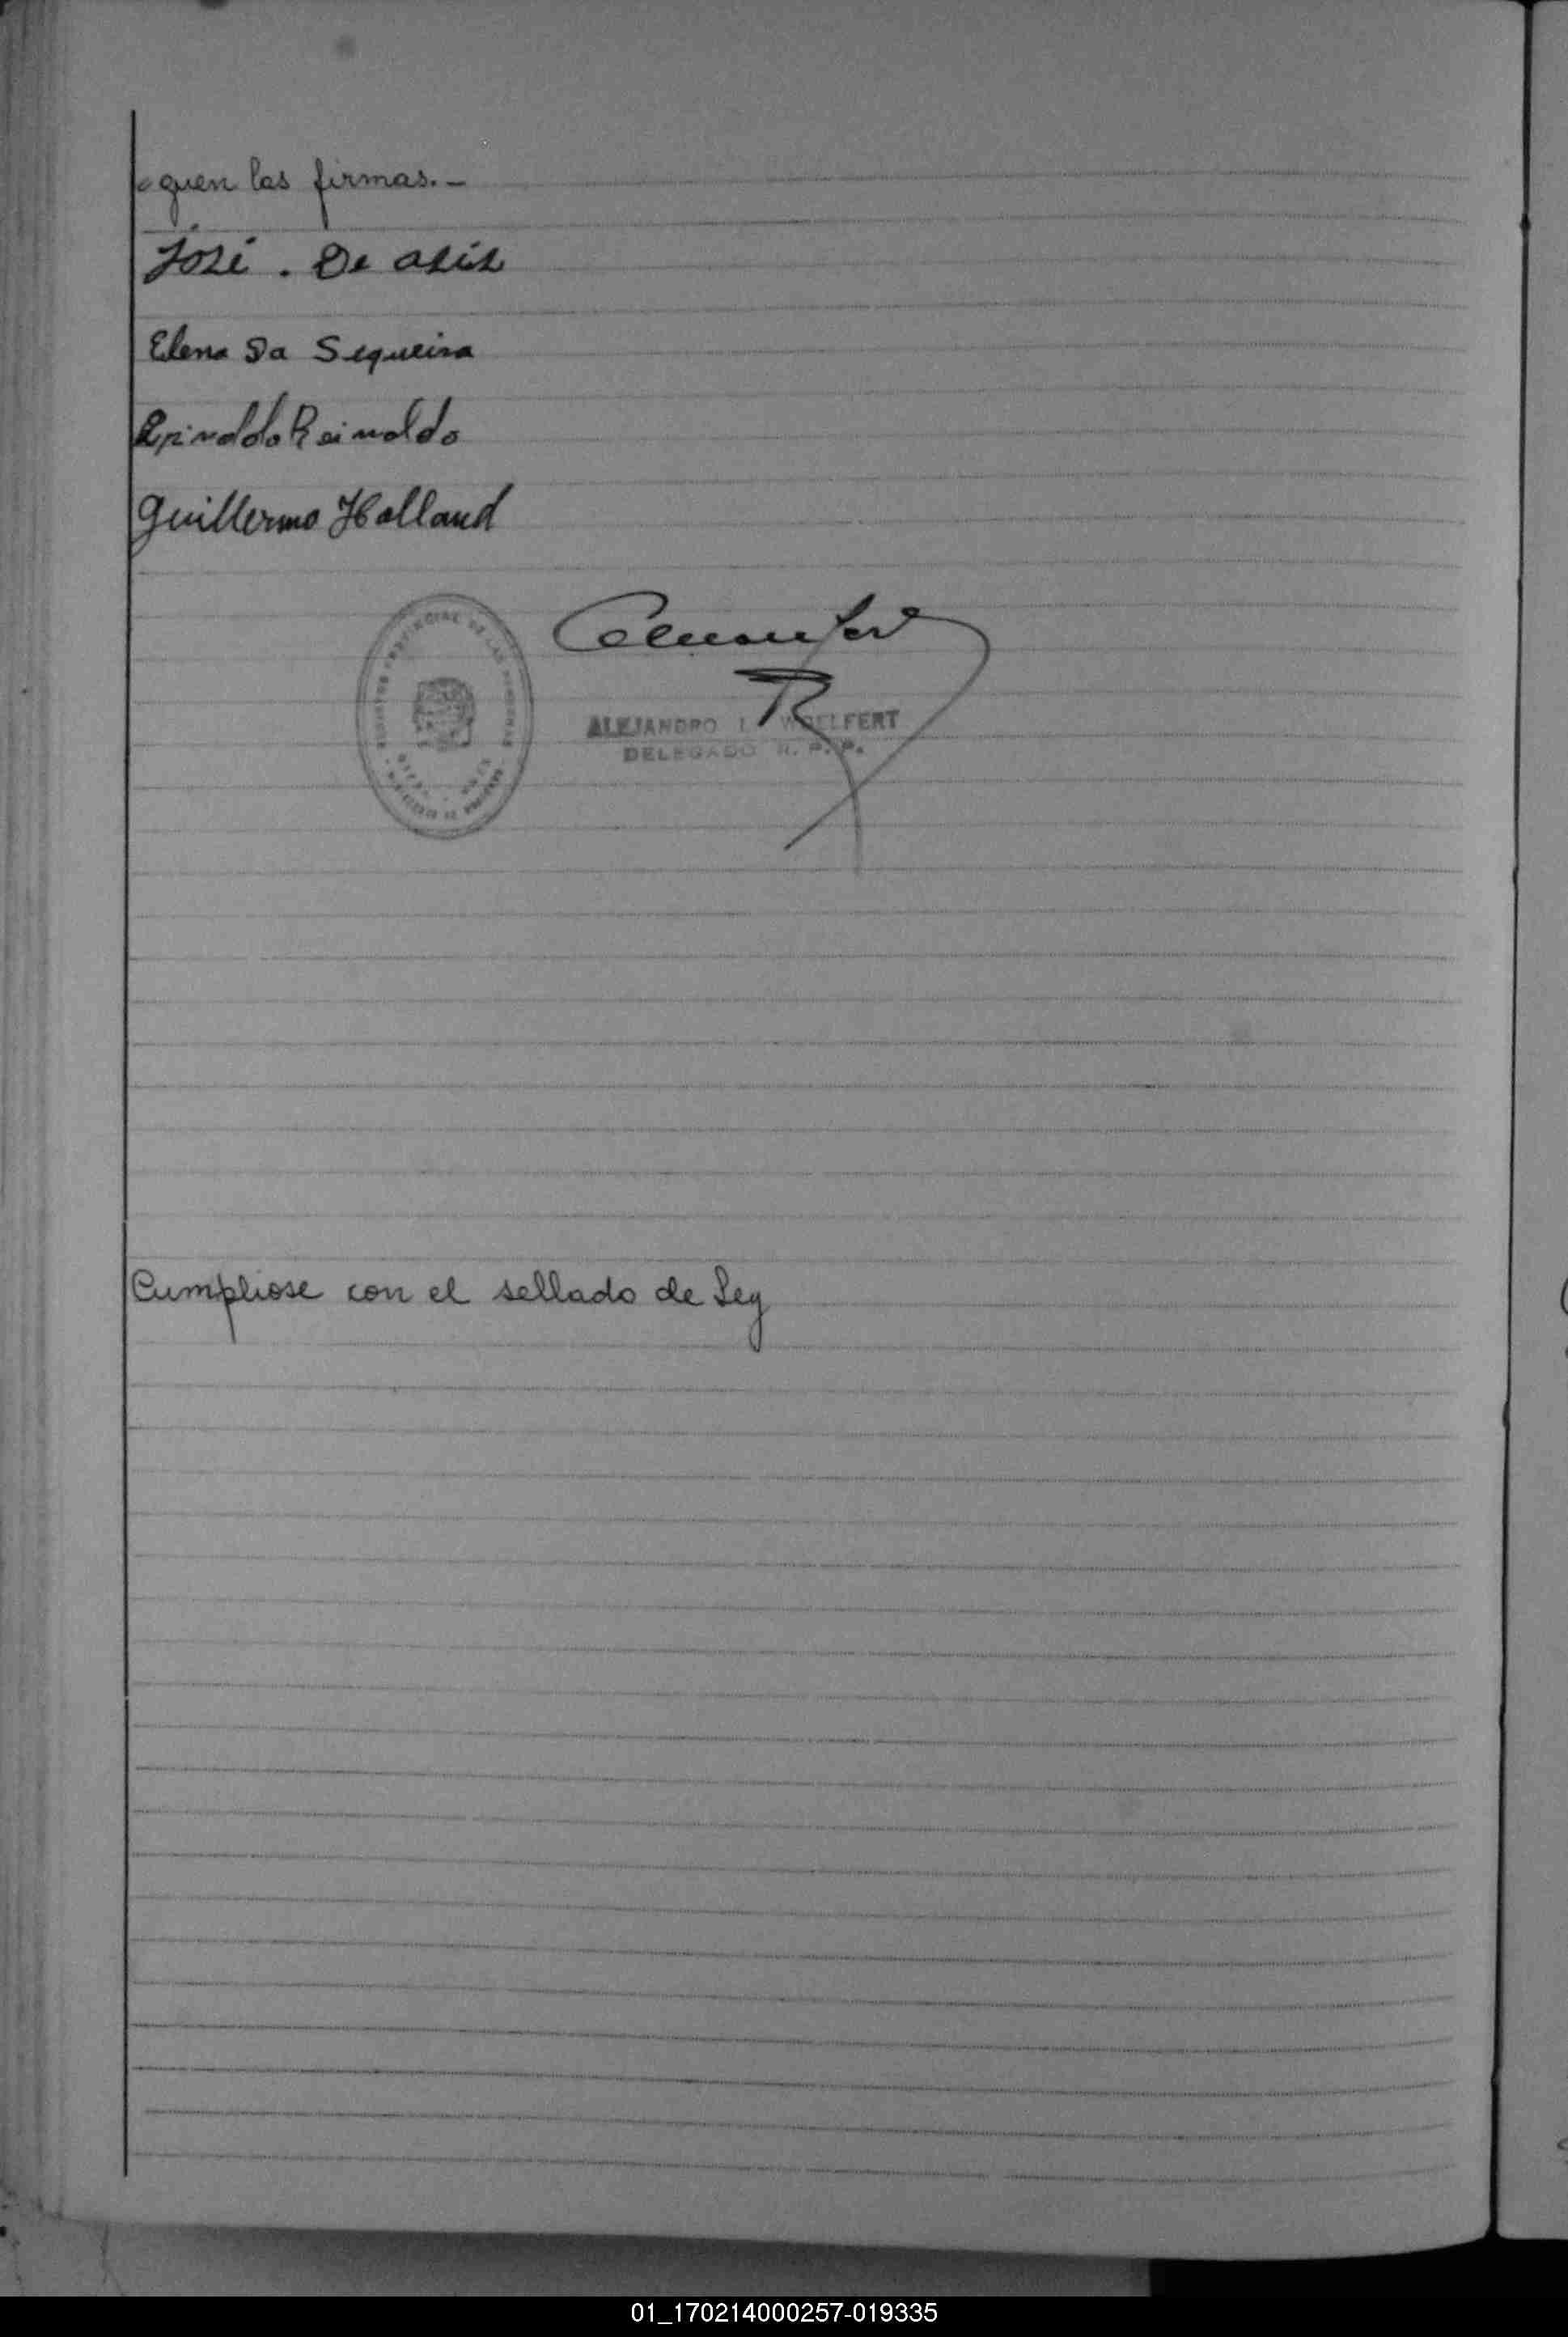 guen las firmas.-
José . De asis
Elena Da Sequeira
Reinaldo
Guillermo Holland
ALEJANDRO L. WOELFERT
DELEGADO R. P. P.
Cumpliose con el sellado de Ley
01_170214000257-019335